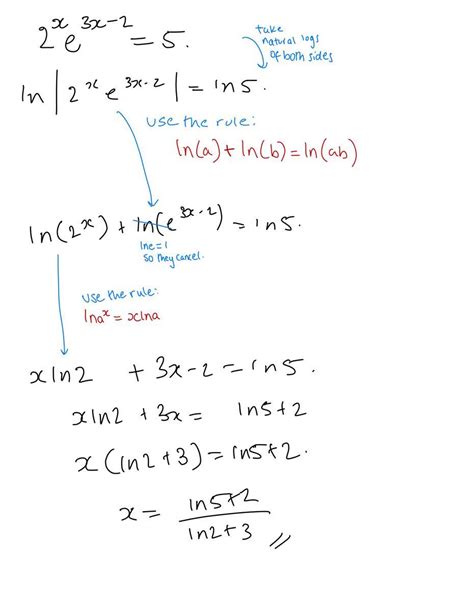 2^x e^{3x-2} = 5.
take
natural logs
of both sides
ln|2^x e^{3x-2}| = ln5.
use the rule:
ln(a)+ln(b)=ln(ab)
ln(2^x) + ln(e^{3x-2}) = ln5.
lne=1
so they cancel.
use the rule:
lna^x = xlna
xln2 + 3x-2 = ln5.
xln2 + 3x = ln5+2
x(ln2+3) = ln5+2.
x = \frac{ln5+2}{ln2+3} //